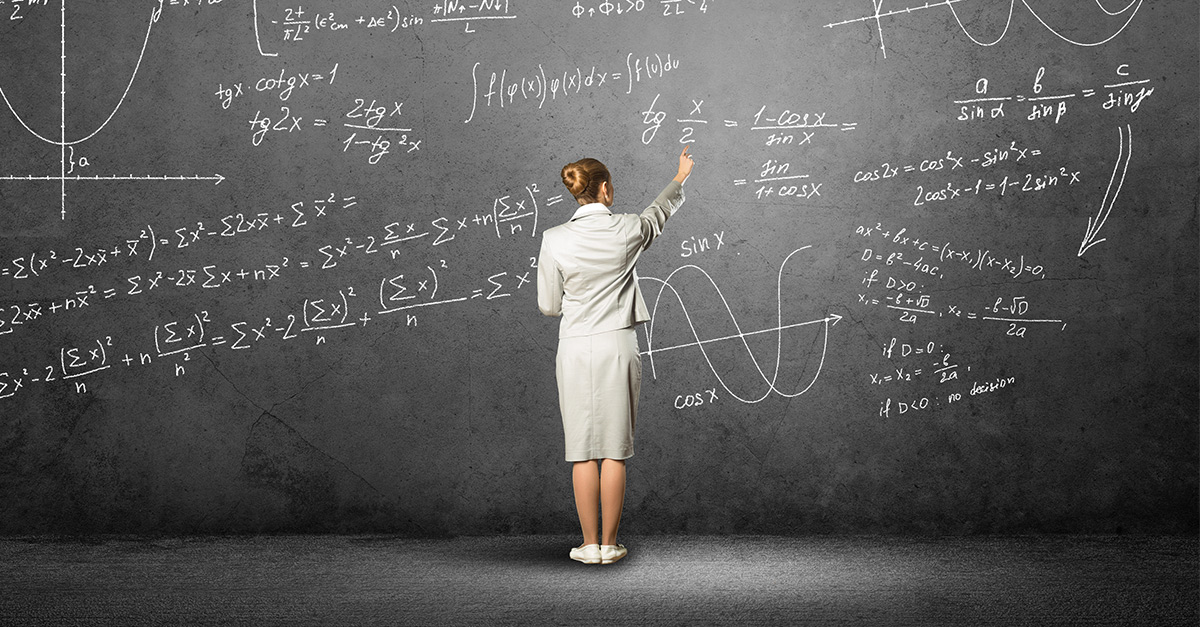 -2t/πL² (ϵ²cm + Δϵ²) sin π|N↑-N↓|/L
Φ↑Φ↓>0
tgx · cotgx = 1
tg2x = 2tgx/1-tg²x
∫f(φ(x))φ(x)dx = ∫f(u)du
tg x/2 = 1-cosx/sinx =
= sin/1+cosx
a/sinα = b/sinβ = c/sinγ
cos2x = cos²x - sin²x =
2cos²x-1 = 1-2sin²x
}a
=Σ(x²-2xx̄+x̄²) = Σx²-Σ2xx̄+Σx̄² =
Σ2xx̄+nx̄² = Σx²-2x̄Σx+nx̄² = Σx²-2 Σx/n Σx+n(Σx/n)² =
Σx²-2 (Σx)²/n + n (Σx)²/n² = Σx²-2 (Σx)²/n + (Σx)²/n = Σx²
sinx
cosx
ax²+bx+c=(x-x₁)(x-x₂)=0,
D=b²-4ac,
if D>0:
x₁= -b+√D/2a, x₂= -b-√D/2a,
if D=0:
x₁=x₂= -b/2a,
if D<0: no decision